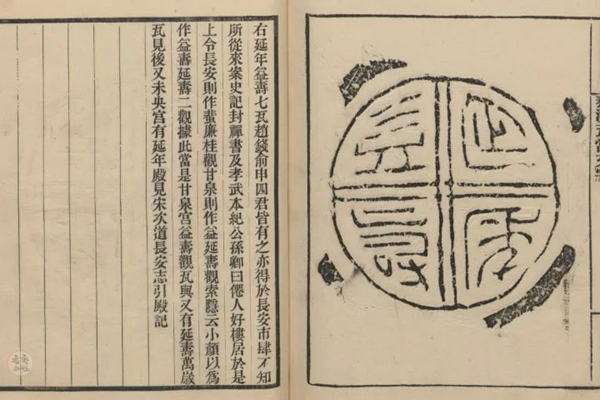 延年
益壽
右延年益壽七瓦趙錢俞申四君皆有之亦得於長安市肆不知
所從來案史記封禪書及孝武本紀公孫卿曰僊人好樓居於是
上令長安則作蜚廉桂觀甘泉則作益延壽觀索隱云小顏以爲
作益壽延壽二觀據此當是甘泉宮益壽觀瓦與又有延壽萬歲
瓦見後又未央宮有延年殿見宋次道長安志引殿記